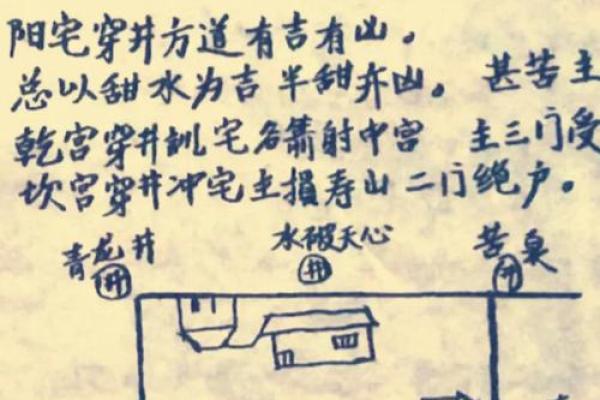 阳宅穿井方道有吉有凶。
总以甜水为吉 半甜亦凶。 甚苦主
乾宫穿井 宅名箭射中宫 主三门受
坎宫穿井冲宅主損寿凶 二门绝户。
青龙井 水破天心 苦泉
井 井 井